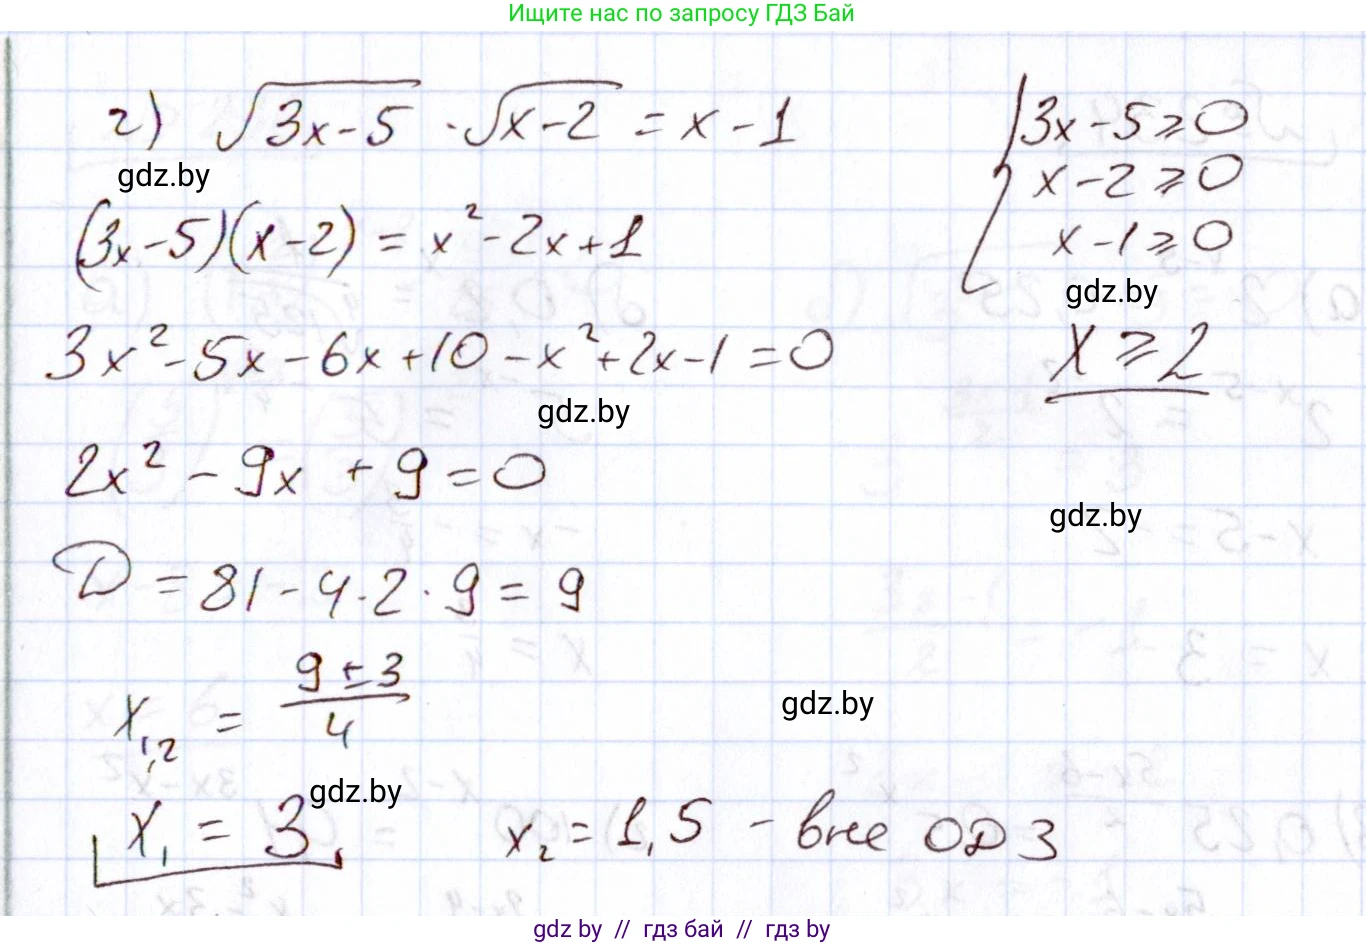 Ищите нас по запросу ГДЗ Бай
г) √(3x-5) · √(x-2) = x - 1
{ 3x - 5 ⩾ 0
x - 2 ⩾ 0
x - 1 ⩾ 0
gdz.by
gdz.by
x ⩾ 2
(3x - 5)(x - 2) = x² - 2x + 1
3x² - 5x - 6x + 10 - x² + 2x - 1 = 0
gdz.by
2x² - 9x + 9 = 0
gdz.by
D = 81 - 4 · 2 · 9 = 9
x₁,₂ = (9 ± 3)/4
gdz.by
gdz.by
x₁ = 3,
x₂ = 1,5 - вне ОДЗ
gdz by // гдз бай // гдз by